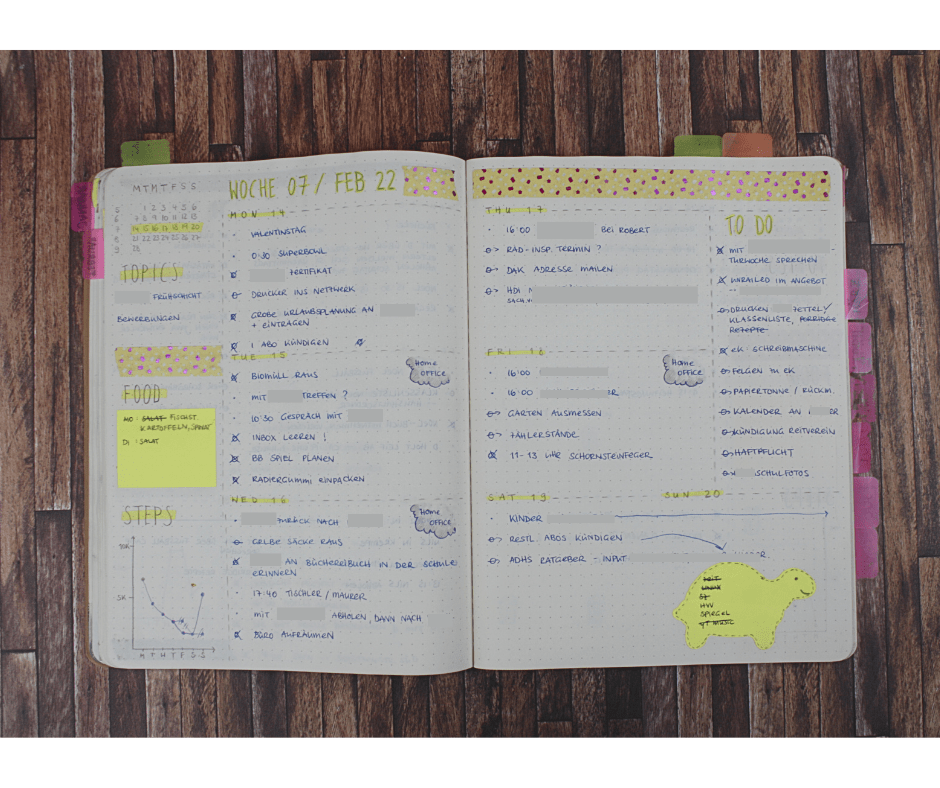 MTMTFSS
5 1 2 3 4 5 6
6 7 8 9 10 11 12 13
7 14 15 16 17 18 19 20
8 21 22 23 24 25 26 27
9 28
TOPICS
FRÜHSCHICHT
BEWERBUNGEN
FOOD
MO: SALAT FISCHST.
KARTOFFELN, SPINAT
DI: SALAT
STEPS
10K
5K
M T M T F S S
WOCHE 07 / FEB 22
MON 14
VALENTINSTAG
0:30 SUPERBOWL
ZERTIFIKAT
DRUCKER INS NETZWERK
GROBE URLAUBSPLANUNG AN
+ EINTRAGEN
1 ABO KÜNDIGEN
TUE 15
Home
OFFICE
BIOMÜLL RAUS
MIT TREFFEN ?
10:30 GESPRÄCH MIT
INBOX LEEREN !
BB SPIEL PLANEN
RADIERGUMMI EINPACKEN
WED 16
Home
OFFICE
ZURÜCK NACH
GELBE SÄCKE RAUS
AN BÜCHEREIBUCH IN DER SCHULE
ERINNERN
17:40 TISCHLER / MAURER
MIT ABHOLEN, DANN NACH
BÜRO AUFRÄUMEN
THU 17
16:00 BEI ROBERT
RAD-INSP. TERMIN ?
DAK ADRESSE MAILEN
HDI
FRI 18
Home
OFFICE
16:00
16:00 ER
GARTEN AUSMESSEN
ZÄHLERSTÄNDE
11-13 UHR SCHORNSTEINFEGER
SAT 19 SUN 20
KINDER
RESTL. ABOS KÜNDIGEN
ADHS RATGEBER - INPUT
HVV
SPIEGEL
YT MUSIC
TO DO
MIT
THRWOCHE SPRECHEN
UNRAILED IM ANGEBOT
DRUCKEN ZETTEL /
KLASSENLISTE, PORRIDGE
REZEPTE
EK: SCHREIBMASCHINE
FELGEN IN EK
PAPIERTONNE / RÜCKM.
KALENDER AN ER
KÜNDIGUNG REITVEREIN
HAFTPFLICHT
SCHULFOTOS